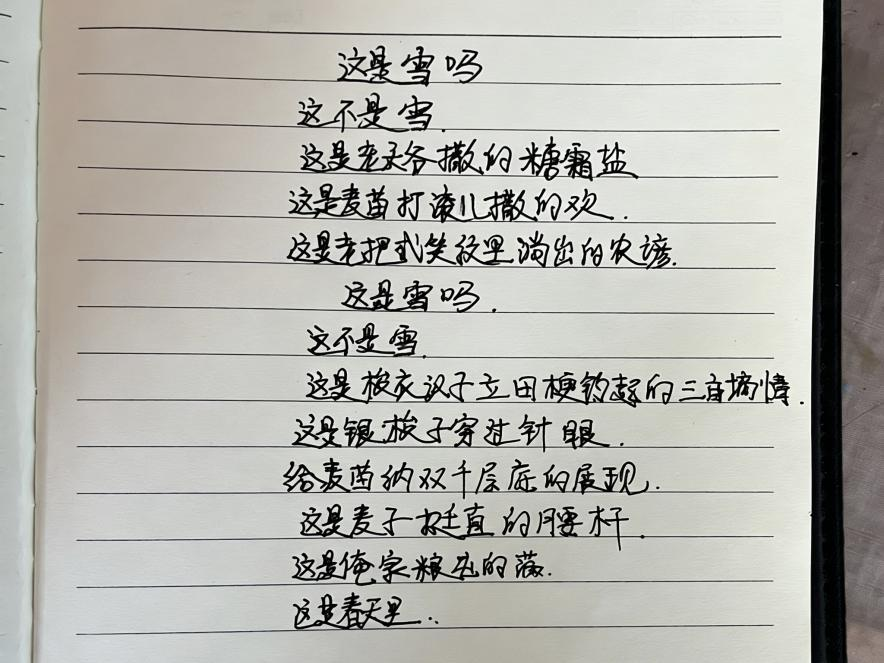 这是雪吗
这不是雪.
这是老天爷撒的糖霜盐
这是麦苗打滚儿撒的欢.
这是老把式笑纹里淌出的农谚.
这是雪吗.
这不是雪.
这是梭衣汉子立田梗钓起的三亩墒情.
这是银梭子穿过针眼.
给麦苗纳双千层底的展现.
这是麦子挺直的腰杆.
这是俺家粮的藏.
这是春天里..